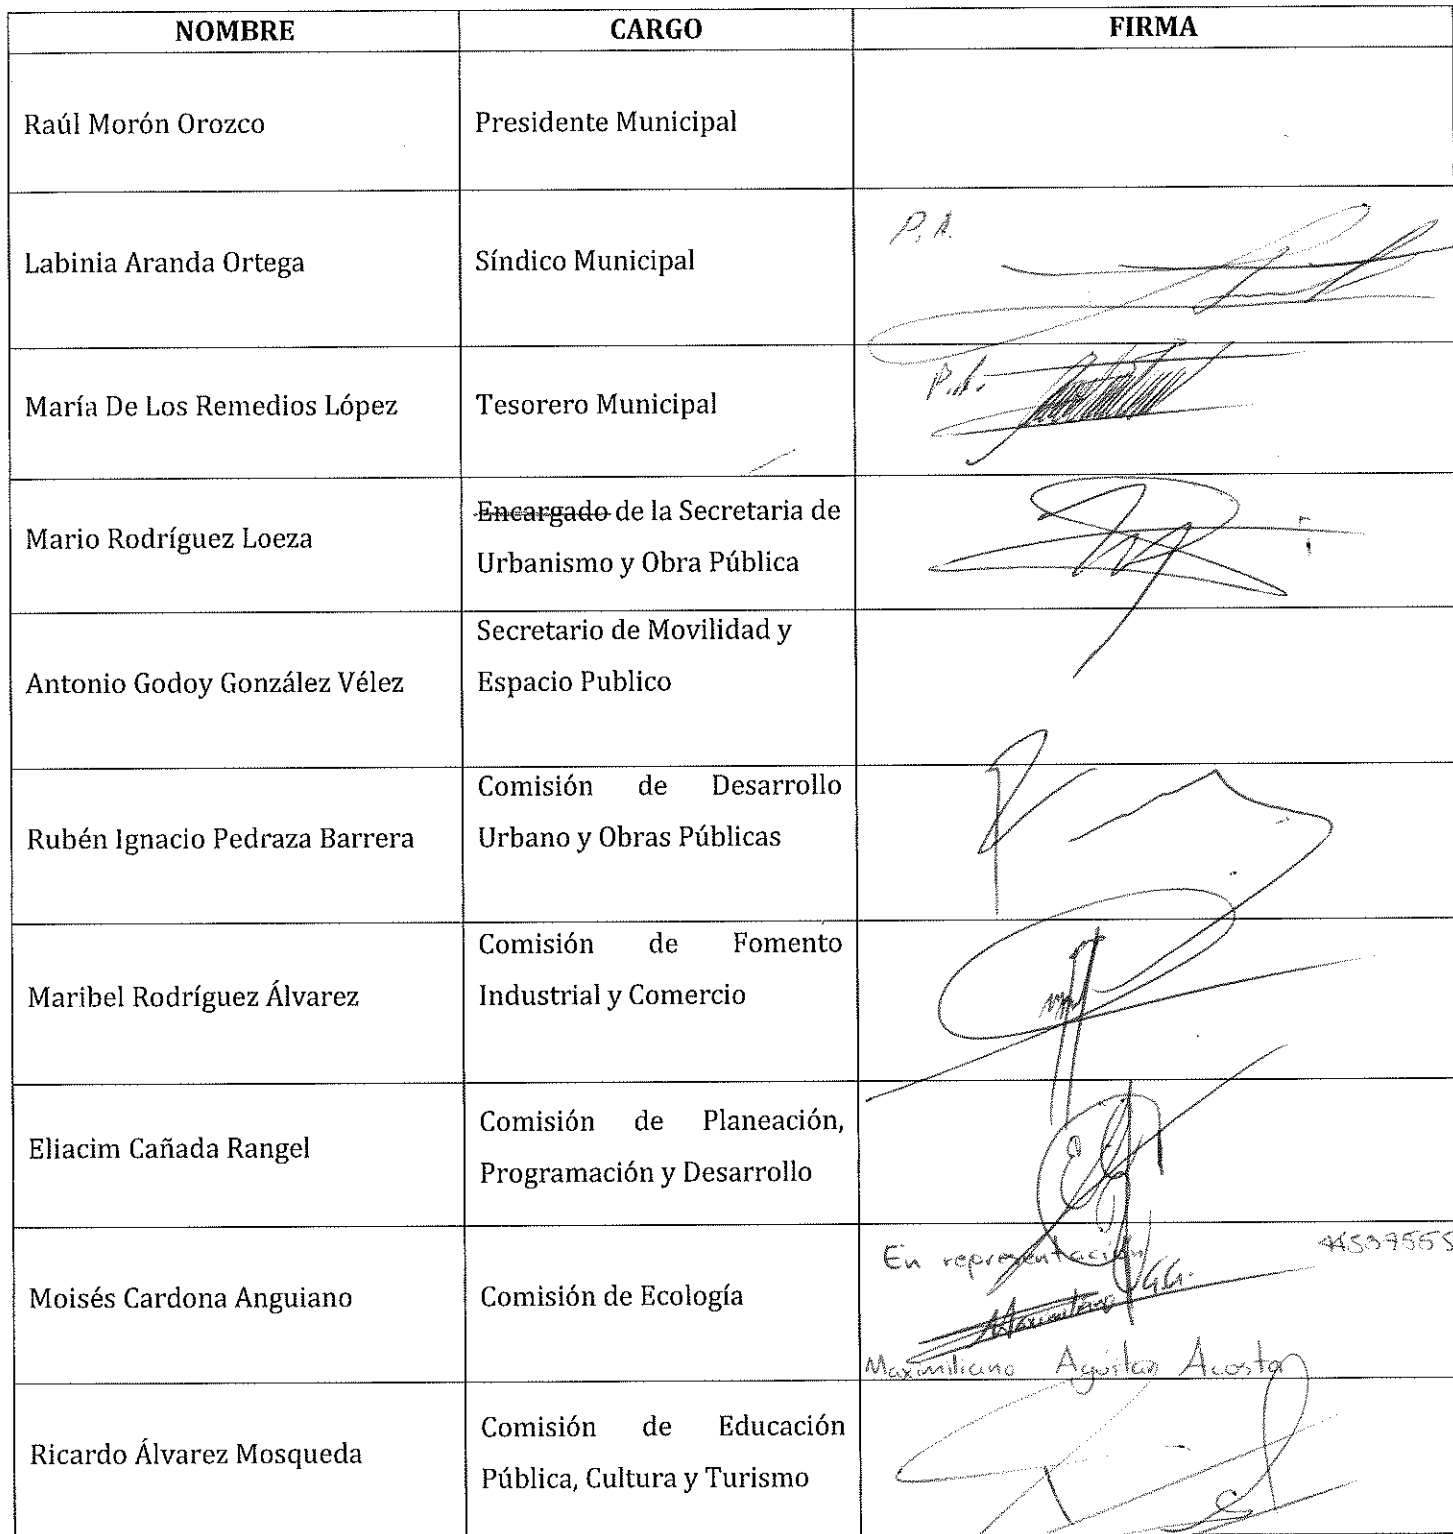 NOMBRE CARGO FIRMA
Raúl Morón Orozco Presidente Municipal
Labinia Aranda Ortega Síndico Municipal P.A.
María De Los Remedios López Tesorero Municipal P.A.
Mario Rodríguez Loeza Encargado de la Secretaria de
Urbanismo y Obra Pública
Antonio Godoy González Vélez Secretario de Movilidad y
Espacio Publico
Rubén Ignacio Pedraza Barrera Comisión de Desarrollo
Urbano y Obras Públicas
Maribel Rodríguez Álvarez Comisión de Fomento
Industrial y Comercio
Eliacim Cañada Rangel Comisión de Planeación,
Programación y Desarrollo
Moisés Cardona Anguiano Comisión de Ecología En representación
Maximiliano Aguilar Acosta
Ricardo Álvarez Mosqueda Comisión de Educación
Pública, Cultura y Turismo